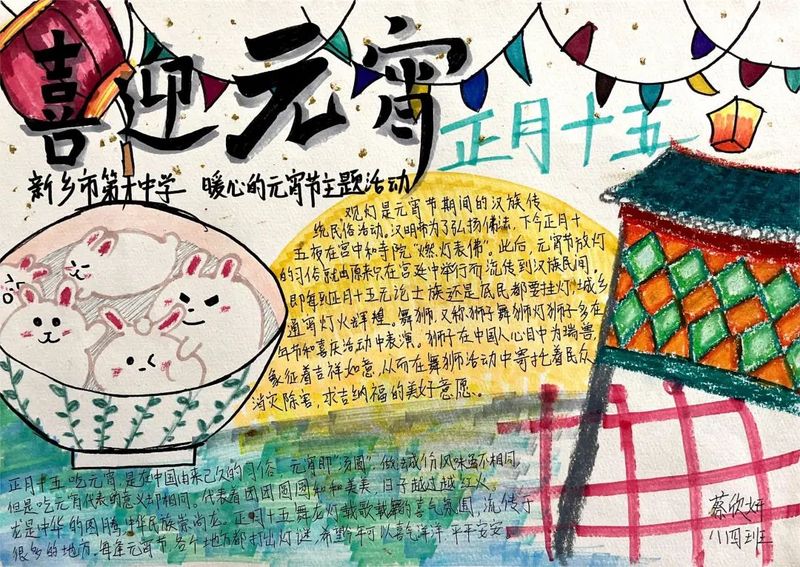 喜迎元宵
正月十五
新乡市第十中学 暖心的元宵节主题活动
观灯是元宵节期间的汉族传
统民俗活动。汉明帝为了弘扬佛法，下令正月十
五夜在宫中和寺院“燃灯表佛”。此后，元宵节放灯
的习俗就由原来只在宫廷中举行而流传到汉族民间。
即每到正月十五无论士族还是庶民都要挂灯，城乡
通宵灯火辉煌。舞狮，又称狮子舞狮灯狮子多在
年节和喜庆活动中表演。狮子在中国人心目中为瑞兽，
象征着吉祥如意，从而在舞狮活动中寄托着民众
消灾除害，求吉纳福的美好意愿。
正月十五吃元宵，是在中国由来已久的习俗，元宵即“汤圆”，做法成份风味各不相同，
但是吃元宵代表的意义却相同。代表着团团圆圆和和美美，日子越过越红火。
龙是中华的图腾，中华民族崇尚龙。正月十五舞龙灯载歌载舞的喜气氛围，流传于
很多的地方，每逢元宵节，各个地方都打出灯谜，希望今年可以喜气洋洋，平平安安。
蔡欣妍
八四班